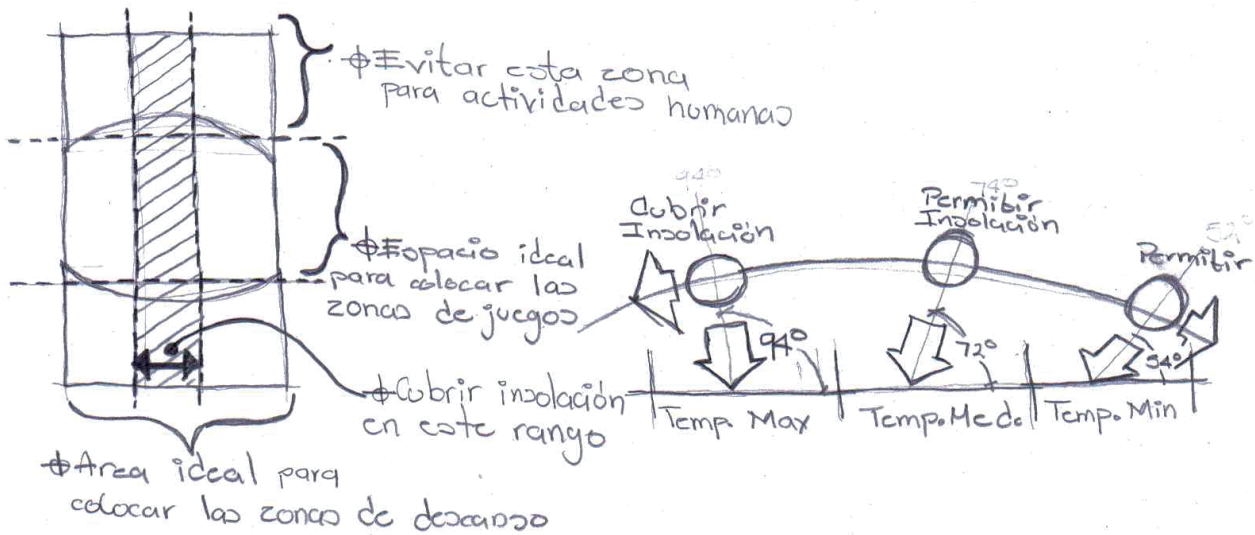 ϕEvitar esta zona
para actividades humanas
ϕEspacio ideal
para colocar las
zonas de juegos
ϕCubrir insolación
en este rango
ϕArea ideal para
colocar las zonas de descanso
94°
Cubrir
Insolación
74°
Permibir
Insolación
52°
Permibir
94°
72°
54°
Temp. Max
Temp. Med.
Temp. Min